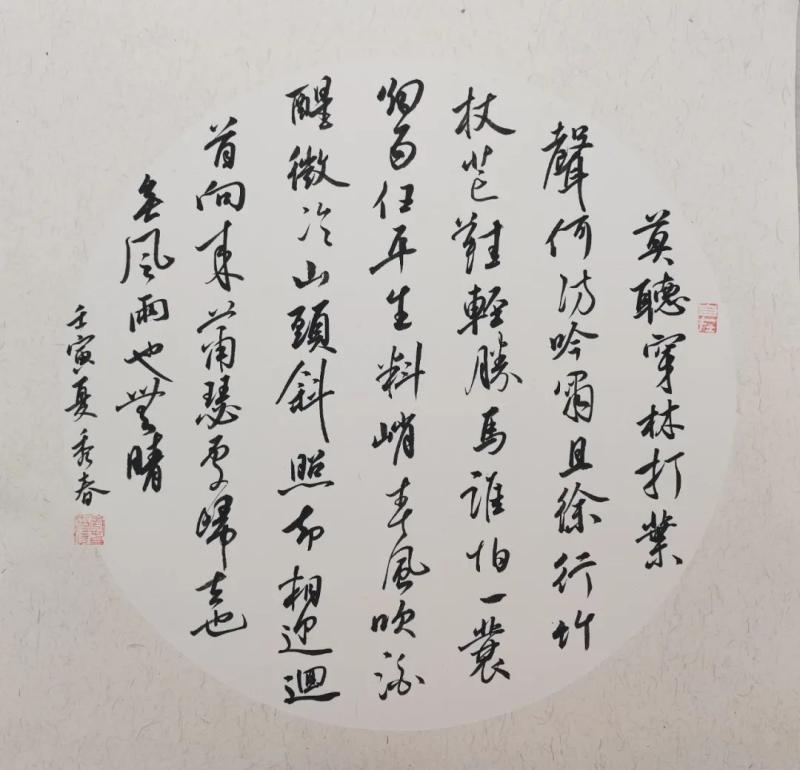 莫聽穿林打葉
聲何妨吟嘯且徐行竹
杖芒鞋輕勝馬誰怕一蓑
烟雨任平生料峭春風吹酒
醒微冷山頭斜照却相迎迴
首向來蕭瑟處歸去也
無風雨也無晴
壬寅夏秀春